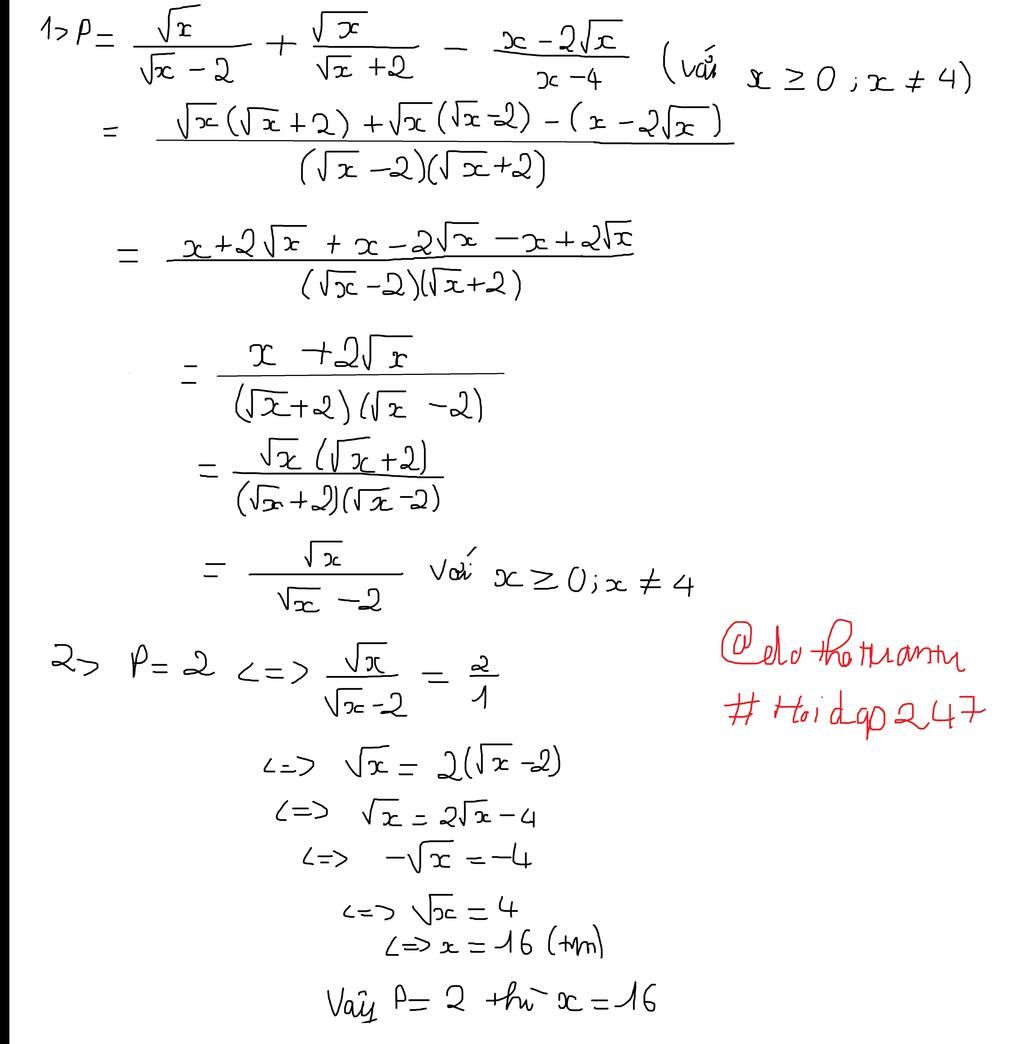 1> P = √x/(√x - 2) + √x/(√x + 2) - (x - 2√x)/(x - 4) (với x ≥ 0 ; x ≠ 4)
= (√x(√x + 2) + √x(√x - 2) - (x - 2√x))/((√x - 2)(√x + 2))
= (x + 2√x + x - 2√x - x + 2√x)/((√x - 2)(√x + 2))
= (x + 2√x)/((√x + 2)(√x - 2))
= (√x(√x + 2))/((√x + 2)(√x - 2))
= √x/(√x - 2) với x ≥ 0 ; x ≠ 4
2> P = 2 <=> √x/(√x - 2) = 2/1
<=> √x = 2(√x - 2)
<=> √x = 2√x - 4
<=> -√x = -4
<=> √x = 4
<=> x = 16 (tm)
Vậy P = 2 thì x = 16
#Hoidap247